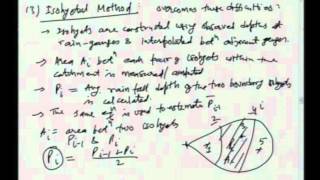 (3) Isohyetal Method : overcomes these difficulties:
→ Isohyets are constructed using observed depths of
rain-gauges & interpolated betn adjacent gauges.
→ Area Ai betn each pair of isohyets within the
catchment is measured/
→ Pi = Avg rainfall depth of the two boundary isohyets
is calculated.
→ The same is used to estimate Pi-1
Ai = area betn two isohyets
Pi-1 & Pi
Pi = Pi-1 + Pi
2
5+